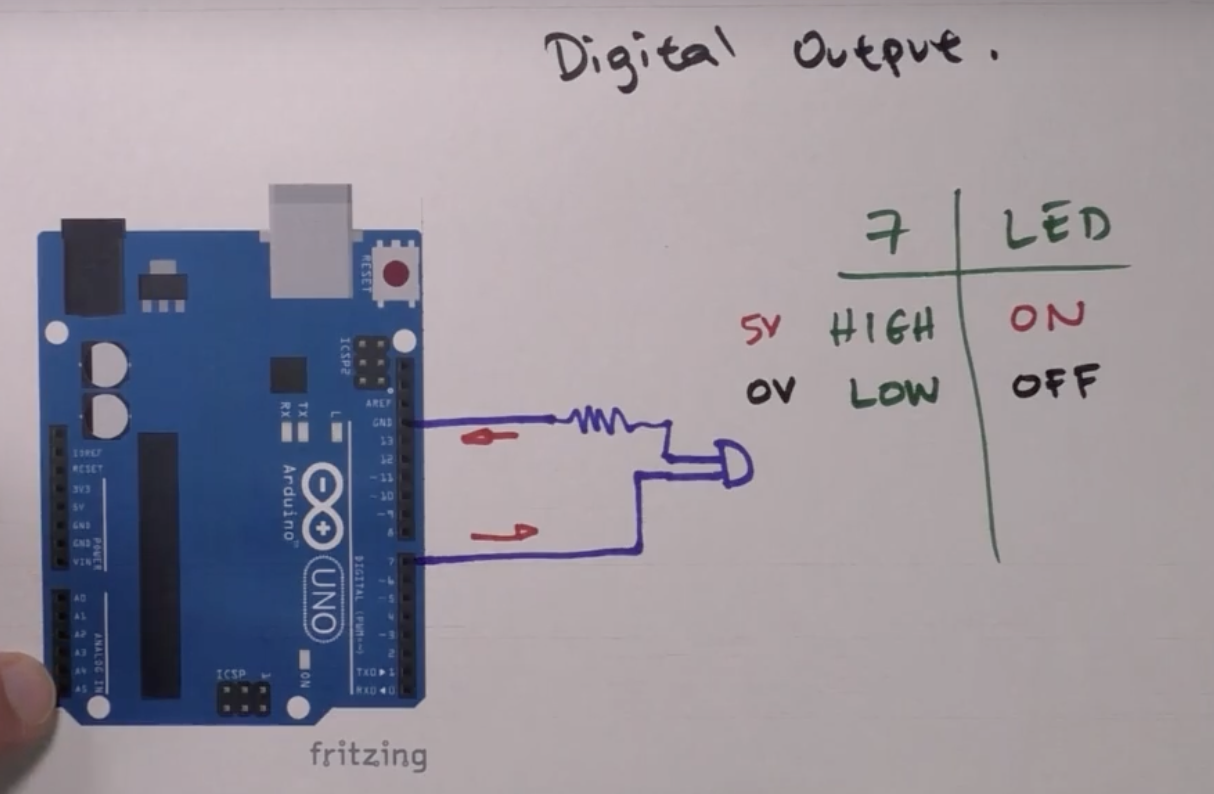 Digital Output.
7 LED
5V HIGH ON
0V LOW OFF
RESET
ICSP2
AREF
GND
13
12
~11
~10
~9
8
7
~6
~5
4
~3
2
TXD▶1
RXD◀0
L
TX
RX
Arduino™
UNO
DIGITAL (PWM~)
IOREF
RESET
3V3
5V
GND
GND
VIN
POWER
A0
A1
A2
A3
A4
A5
ANALOG IN
ICSP
1
ON
fritzing